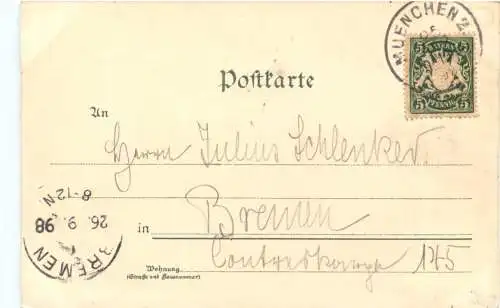 MUENCHEN 2
5 BAYERN 5
5 PFENNIG 5
Postkarte
An
Herrn Julius Schlenker.
in Bremen
Wohnung
(Straße und Hausnummer)
Contrescarpe 145
BREMEN
26. 9. 98
8-12 N